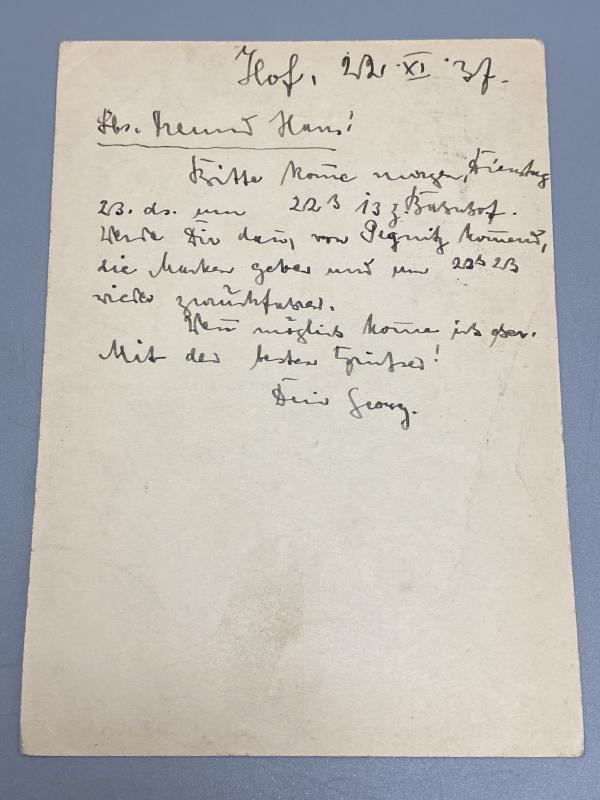 Hof, 22 XI. 37.
Lbr. Freund Hans!
Bitte kom̄e morgen, Dienstag
23. ds. um 22h 13 z Bahnhof.
Werde Dir dann, von Pegnitz kom̄end,
die Marken geben und um 22h 23
wieder zurückfahren.
Wen̄ möglich kom̄e ich
Mit den besten Grüßen!
Dein Georg.